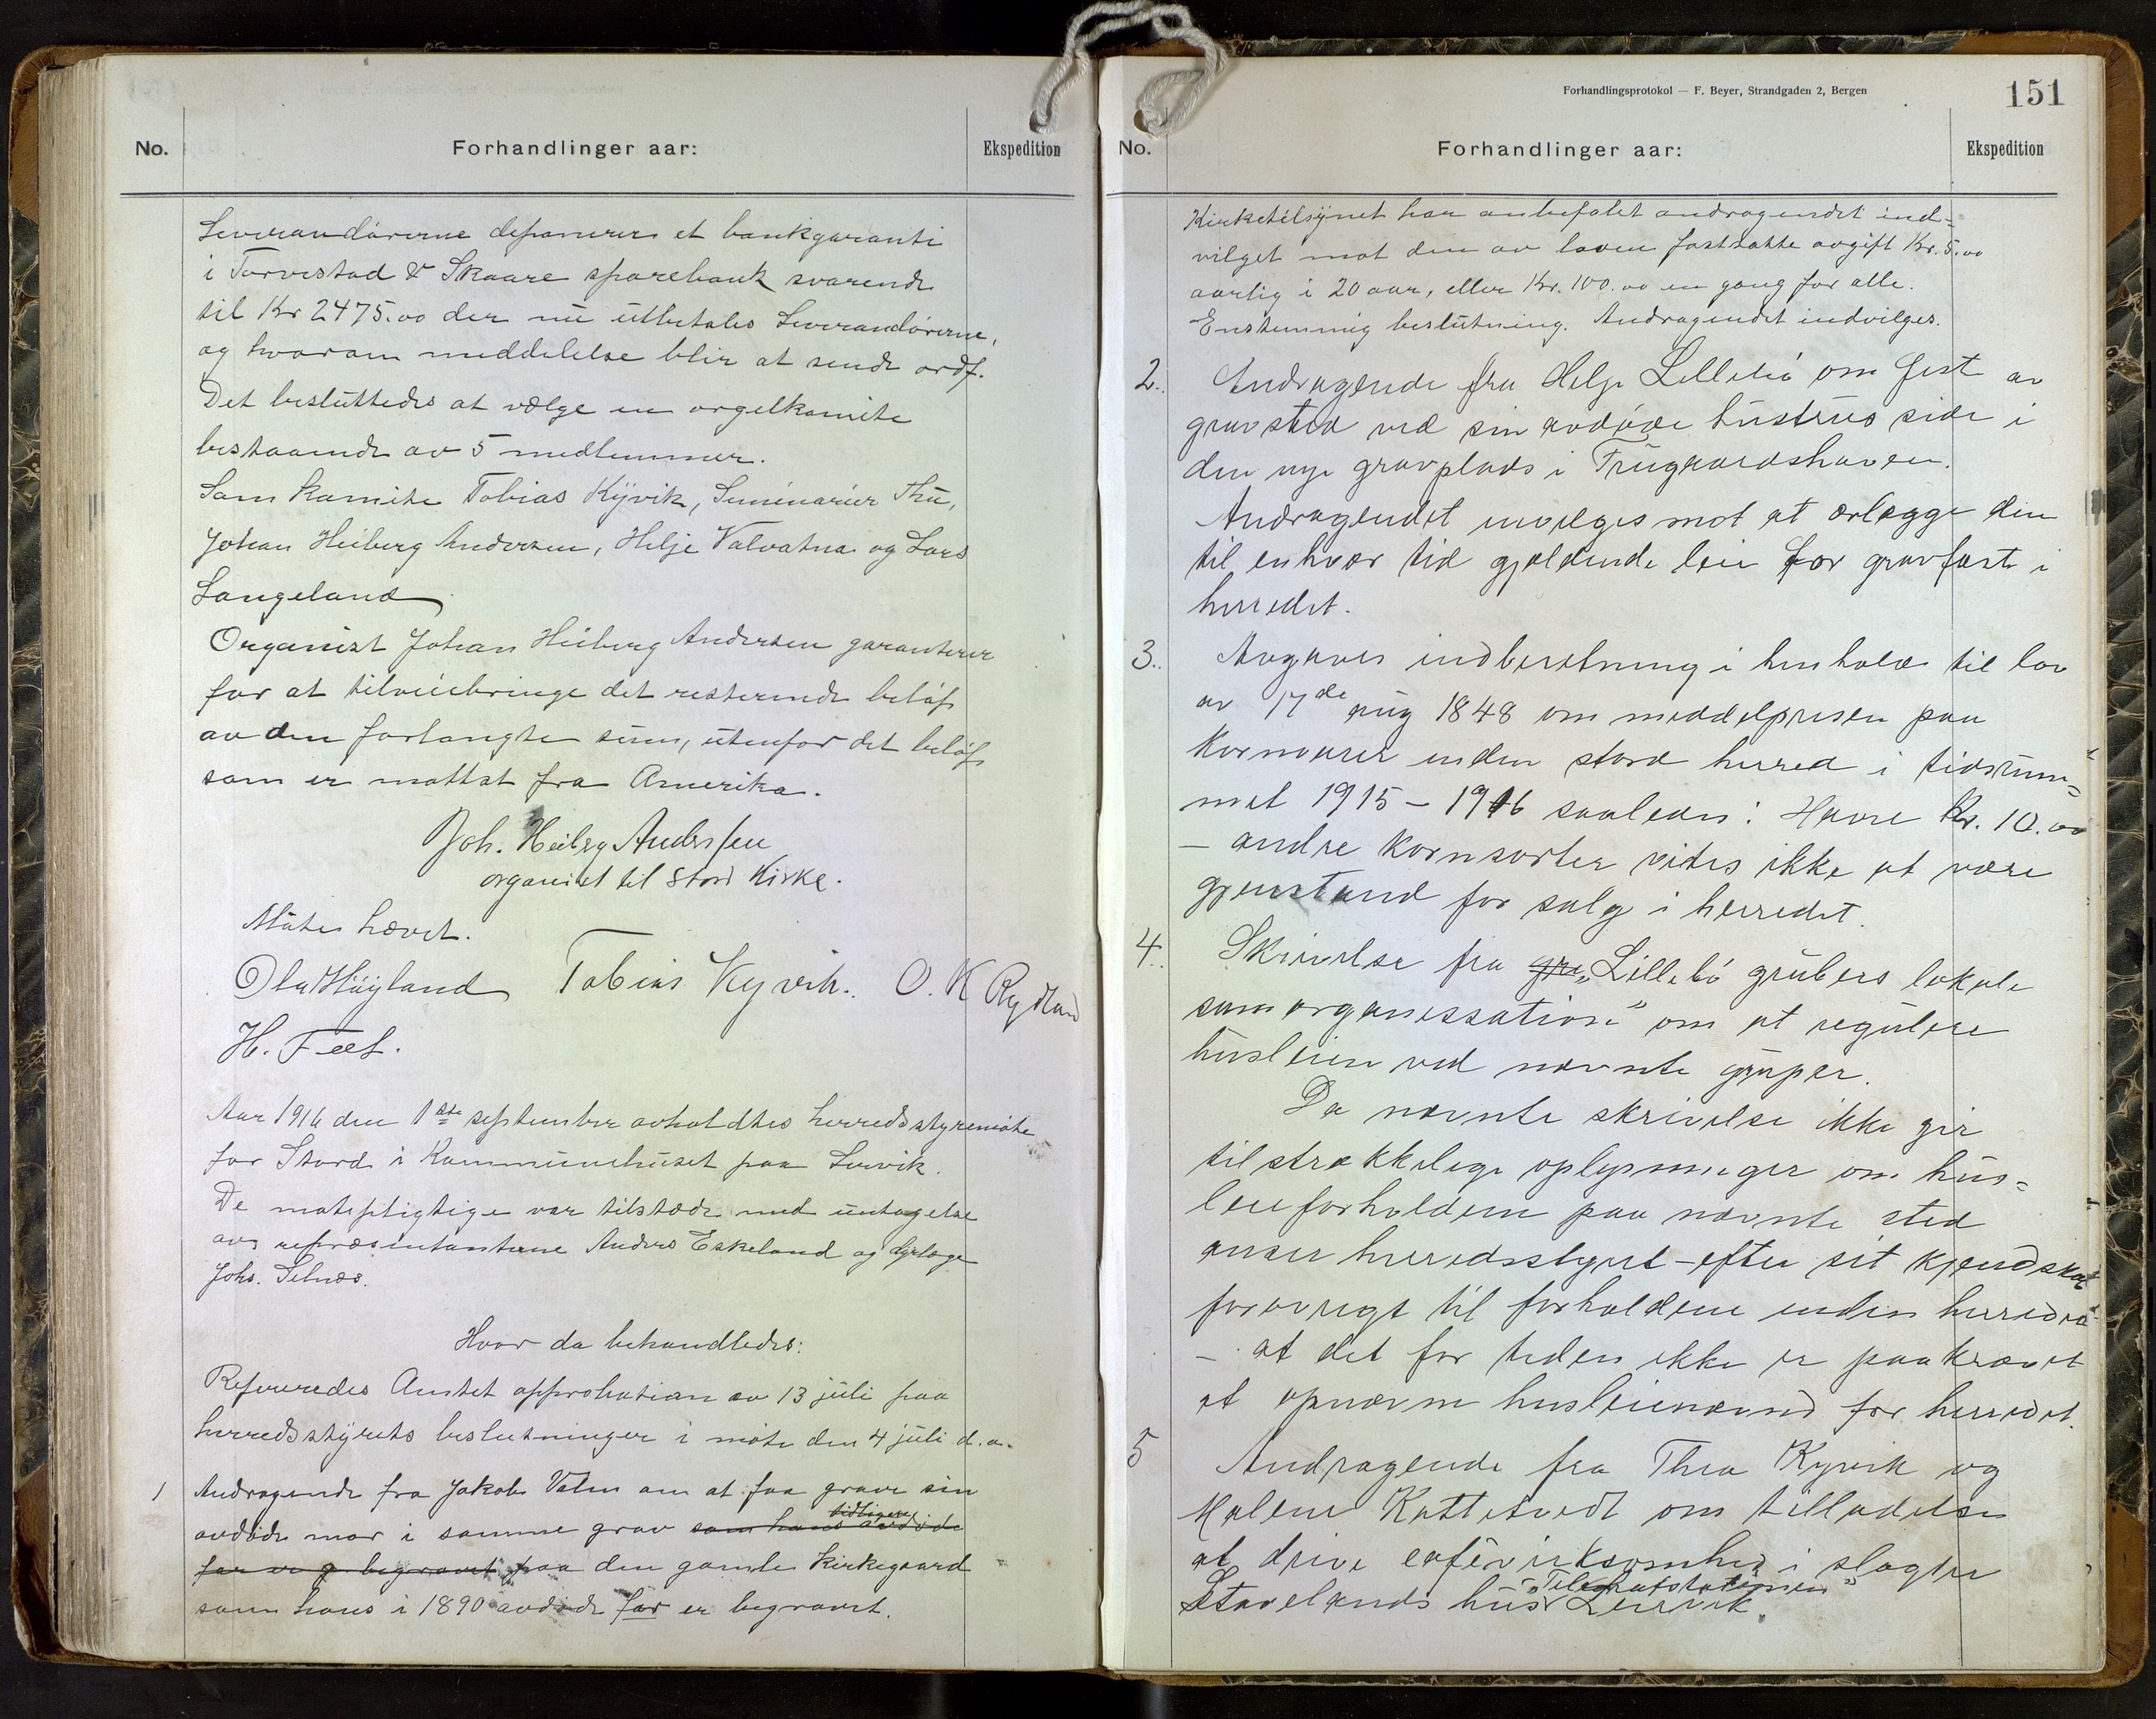 No.
Forhandlinger aar:
Ekspedition
Leverandørerne deponerer et bankgaranti
i Torvestad & Skaare sparebank svarende
til Kr 2475.00 der nu utbetales Leverandørerne,
og hvorom meddelelse blir at sende ordf.
Det besluttedes at vælge en orgelkomite
bestaaende av 5 medlemmer.
Som komite Tobias Kyvik, Seminarier Thu,
Johan Heiberg Andersen, Helje Valvatna og Lars
Langeland
Organist Johan Heiberg Andersen garanterer
for at tilveiebringe det resterende beløp
av den forlangte sum, utenfor det beløp
som er mottat fra Amerika.
Joh. Heiberg Andersen
organist til Stord Kirke.
Møtet hævet.
Ola Høyland Tobias Kyvik. O. K Rydland
H. Feet.
Aar 1916 den 1ste september avholdtes herredsstyremøte
for Stord i Kommunehuset paa Lervik.
De møtepligtige var tilstæde med untagelse
av repræsentanterne Anders Eskeland og dyrlæge
Johs. Setnæs.
Hvor da behandledes:
Refereredes Amtet approbation av 13 juli paa
herredsstyrets beslutninger i møte den 4 juli d.a.
1 Andragende fra Jakob Vatna om at faa grave sin
avdøde mor i samme grav som hans tidligere avdøde
far er begravet paa den gamle Kirkegaard
som hans i 1890 avdøde far er begravet.
Forhandlingsprotokol — F. Beyer, Strandgaden 2, Bergen
151
No.
Forhandlinger aar:
Ekspedition
Kirketilsynet har anbefalet andragendet ind-
vilget mot den av loven fastsatte avgift Kr. 5.00
aarlig i 20 aar, eller Kr. 100.00 en gang for alle.
Enstemmig beslutning. Andragendet indvilges.
2. Andragende fra Helje Lillebø om fest av
gravsted ved sin avdøde hustrus side i
den nye gravplads i Trugaardshaven.
Andragendet invilges mot at erlægge den
til enhver tid gjældende leie for gravfæste i
herredet.
3. Avgaves indberetning i henhold til lov
av 17de aug 1848 om middelprisen paa
Kornvarer inden Stord herred i tidsrum-
met 1915 – 1916 saaledes: Havre Kr. 10.00
– andre Kornsorter vides ikke at være
gjenstand for salg i herredet.
4. Skrivelse fra gru „Lillebø grubers lokale
samorganissation" om at regulere
husleien ved nævnte gruper.
Da nævnte skrivelse ikke gir
tilstrækkelige oplysninger om hus-
leieforholdene paa nævnte sted
anser herredsstyret – efter sit kjendskap
forøvrigt til forholdene inden herredet
– at det for tiden ikke er paakrævet
at opnævne husleienævnd for herredet.
5 Andragende fra Thea Kyvik og
Malene Kattetvedt om tilladelse
at drive cafévirksomhed i slagter
Stavelands hus „Telegrafstationen" Leirvik.